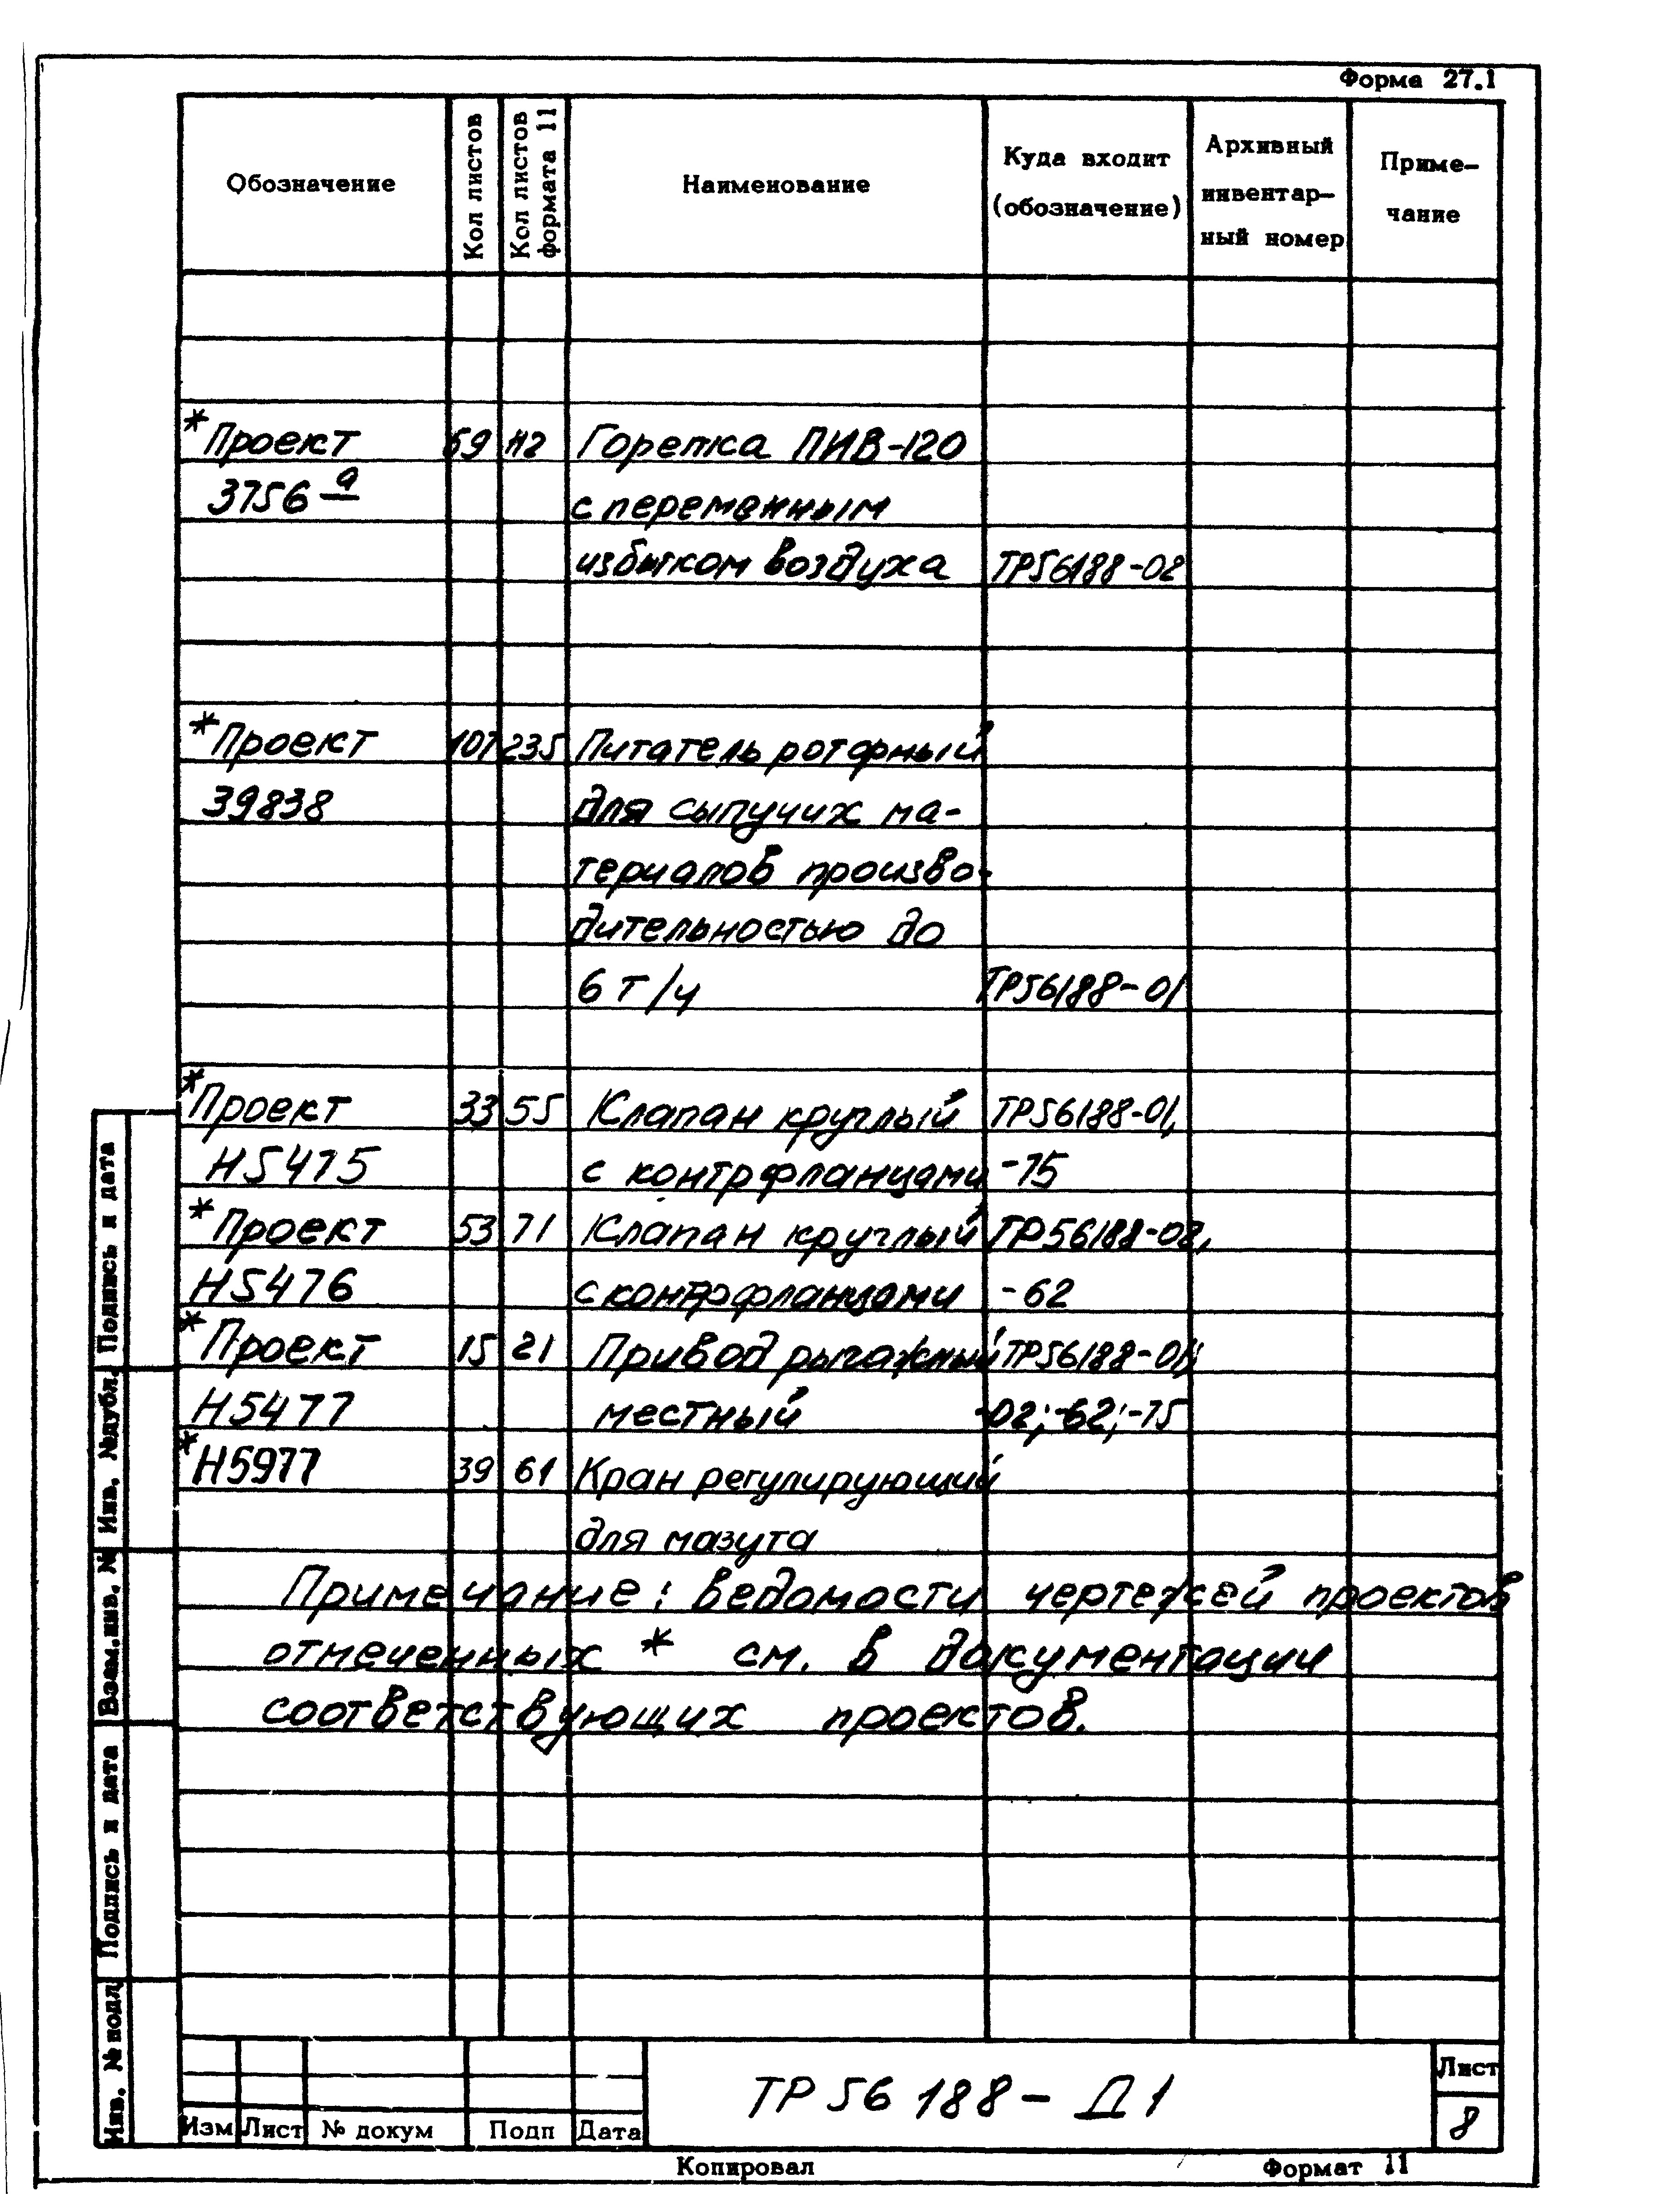 Форма 27.1
Обозначение
Кол листов
Кол листов
формата 11
Наименование
Куда входит
(обозначение)
Архивный
инвентар–
ный номер
Приме–
чание
*Проект 69 Горелка ПИВ-120
3756 а с переменным
избытком воздуха ТР56188-02
*Проект 107 235 Питатель роторный
39838 для сыпучих ма-
териалов произво-
дительностью до
6 т/ч ТР56188-01
*Проект 33 55 Клапан круглый ТР56188-01,
Н5475 с контрфланцами -75
*Проект 53 71 Клапан круглый ТР56188-02,
Н5476 с контрфланцами -62
*Проект 15 21 Привод рычажный ТР56188-01;
Н5477 местный -02; -62; -75
*Н5977 39 61 Кран регулирующий
для мазута
Примечание: ведомости чертежей проектов
отмеченных * см. в документации
соответствующих проектов.
Подпись и дата
Инв. №дубл.
Взам.инв. №
Подпись и дата
Инв. № подл
Изм Лист № докум Подп Дата
ТР 56 188 – Д1
Лист
8
Копировал
Формат 11